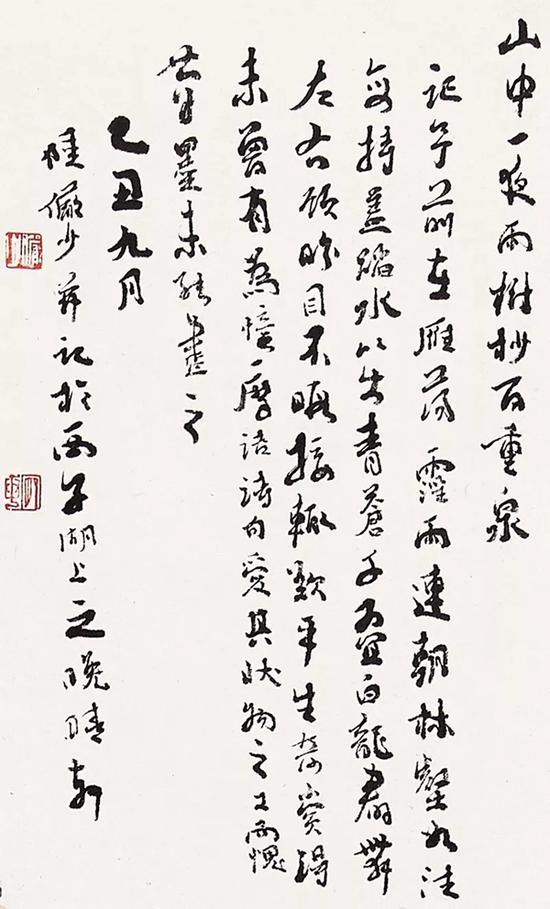 山中一夜雨樹杪百重泉
記年前在雁蕩霪雨連朝林壑如
每持蓋蹋水以出青蒼千疊白龍群舞
左右顧盼目不暇接輒歎平生游賞得
未曾有為憶摩詰詩句愛其狀物之工而愧
墨未能盡之
乙丑九月
陸儼少并記於西子湖上之晚晴軒